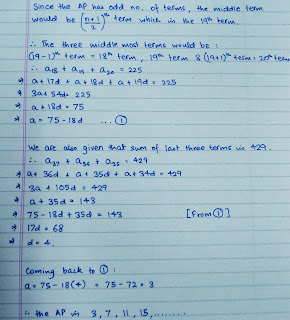 Since the AP has odd no. of terms, the middle term
would be (n+1/2)th term which is the 19th term.
∴ The three middle most terms would be :
(19-1)th term = 18th term, 19th term & (19+1)th term = 20th term
∴ a18 + a19 + a20 = 225
⇒ a + 17d + a + 18d + a + 19d = 225
⇒ 3a + 54d = 225
⇒ a + 18d = 75
⇒ a = 75 - 18d ... ①
We are also given that sum of last three terms is 429.
∴ a37 + a36 + a35 = 429
⇒ a + 36d + a + 35d + a + 34d = 429
⇒ 3a + 105d = 429
⇒ a + 35d = 143
⇒ 75 - 18d + 35d = 143 [From ①]
⇒ 17d = 68
⇒ d = 4.
Coming back to ① :
a = 75 - 18(4) = 75 - 72 = 3
∴ the AP is 3, 7, 11, 15, ........